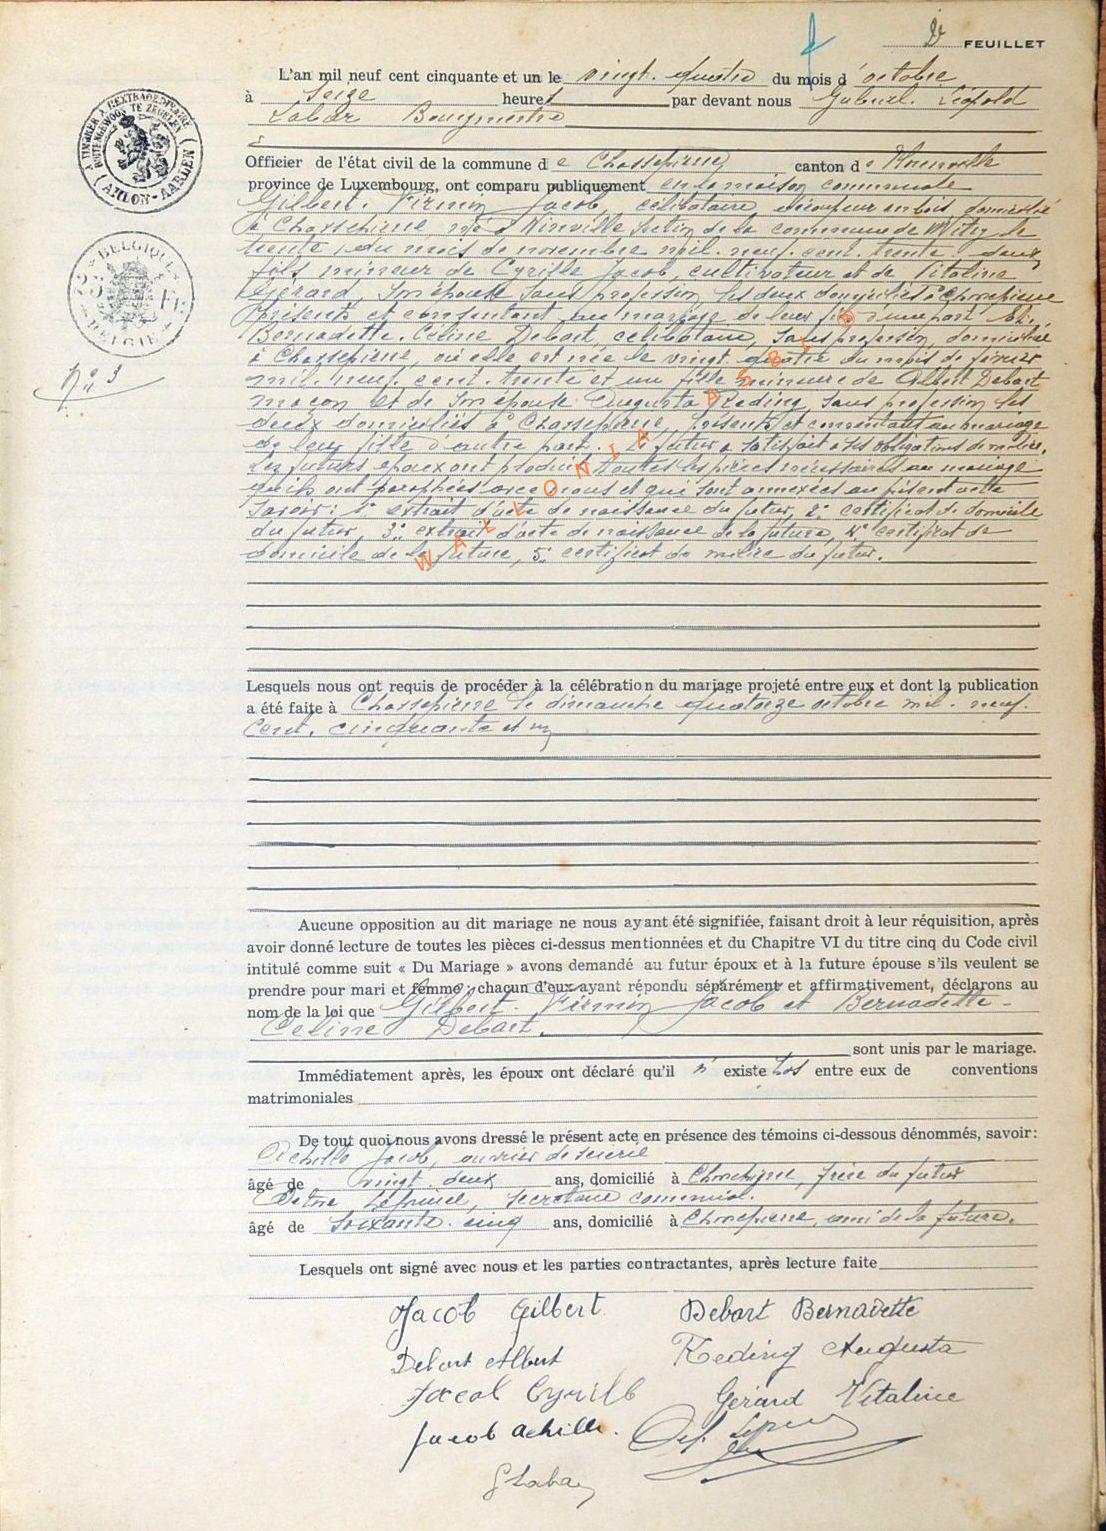 FEUILLET
L'an mil neuf cent cinquante et un le vingt-quatre du mois d'octobre
à seize heures par devant nous Gabriel Léopold
Labar Bourgmestre
Officier de l'état civil de la commune de Chassepierre canton de Florenville
province de Luxembourg, ont comparu publiquement en la maison communale
Gilbert-Firmin Jacob, célibataire découpeur en bois domicilié
à Chassepierre né à Winville section de la commune de Witry le
trente du mois de novembre mil-neuf-cent-trente-deux
fils mineur de Cyrille Jacob, cultivateur et de Vitaline
Gérard, son épouse sans profession, les deux domiciliés à Chassepierre
présents et consentant au mariage de leur fils d'une part Et:
Bernadette-Céline Debart, célibataire, sans profession, domiciliée
à Chassepierre, où elle est née le vingt-quatre du mois de février
mil-neuf-cent-trente et un fille mineure de Albert Debart
maçon et de son épouse Augusta Reding, sans profession les
deux domiciliés à Chassepierre, présents et consentant au mariage
de leur fille d'autre part. Le futur a satisfait à ses obligations de milice.
Les futurs époux ont produit toutes les pièces nécessaires au mariage
qu'ils ont paraphées avec nous et qui sont annexées au présent acte
Savoir: 1° extrait d'acte de naissance du futur, 2° certificat de domicile
du futur, 3° extrait d'acte de naissance de la future, 4° certificat de
domicile de la future, 5° certificat de milice du futur.
Lesquels nous ont requis de procéder à la célébration du mariage projeté entre eux et dont la publication
a été faite à Chassepierre le dimanche quatorze octobre mil-neuf-
cent-cinquante et un
Aucune opposition au dit mariage ne nous ayant été signifiée, faisant droit à leur réquisition, après
avoir donné lecture de toutes les pièces ci-dessus mentionnées et du Chapitre VI du titre cinq du Code civil
intitulé comme suit « Du Mariage » avons demandé au futur époux et à la future épouse s'ils veulent se
prendre pour mari et femme; chacun d'eux ayant répondu séparément et affirmativement, déclarons au
nom de la loi que Gilbert-Firmin Jacob et Bernadette-
Céline Debart.
sont unis par le mariage.
Immédiatement après, les époux ont déclaré qu'il n'existe pas entre eux de conventions
matrimoniales
De tout quoi nous avons dressé le présent acte en présence des témoins ci-dessous dénommés, savoir:
Achille Jacob, ouvrier de scierie
âgé de vingt-deux ans, domicilié à Chassepierre, frère du futur
secrétaire communal.
âgé de soixante-cinq ans, domicilié à Chassepierre, ami de la future.
Lesquels ont signé avec nous et les parties contractantes, après lecture faite
Jacob Gilbert Debart Bernadette
Debart Albert Reding Augusta
Jacob Cyrille Gérard Vitaline
Jacob Achille.
G Labar
A TIMBRER A L'EXTRAORDINAIRE
BUITENGEWOON TE ZEGELEN
(ARLON-AARLEN)
BELGIQUE
BELGIË
N° 3
WALLONIA ASBL ©